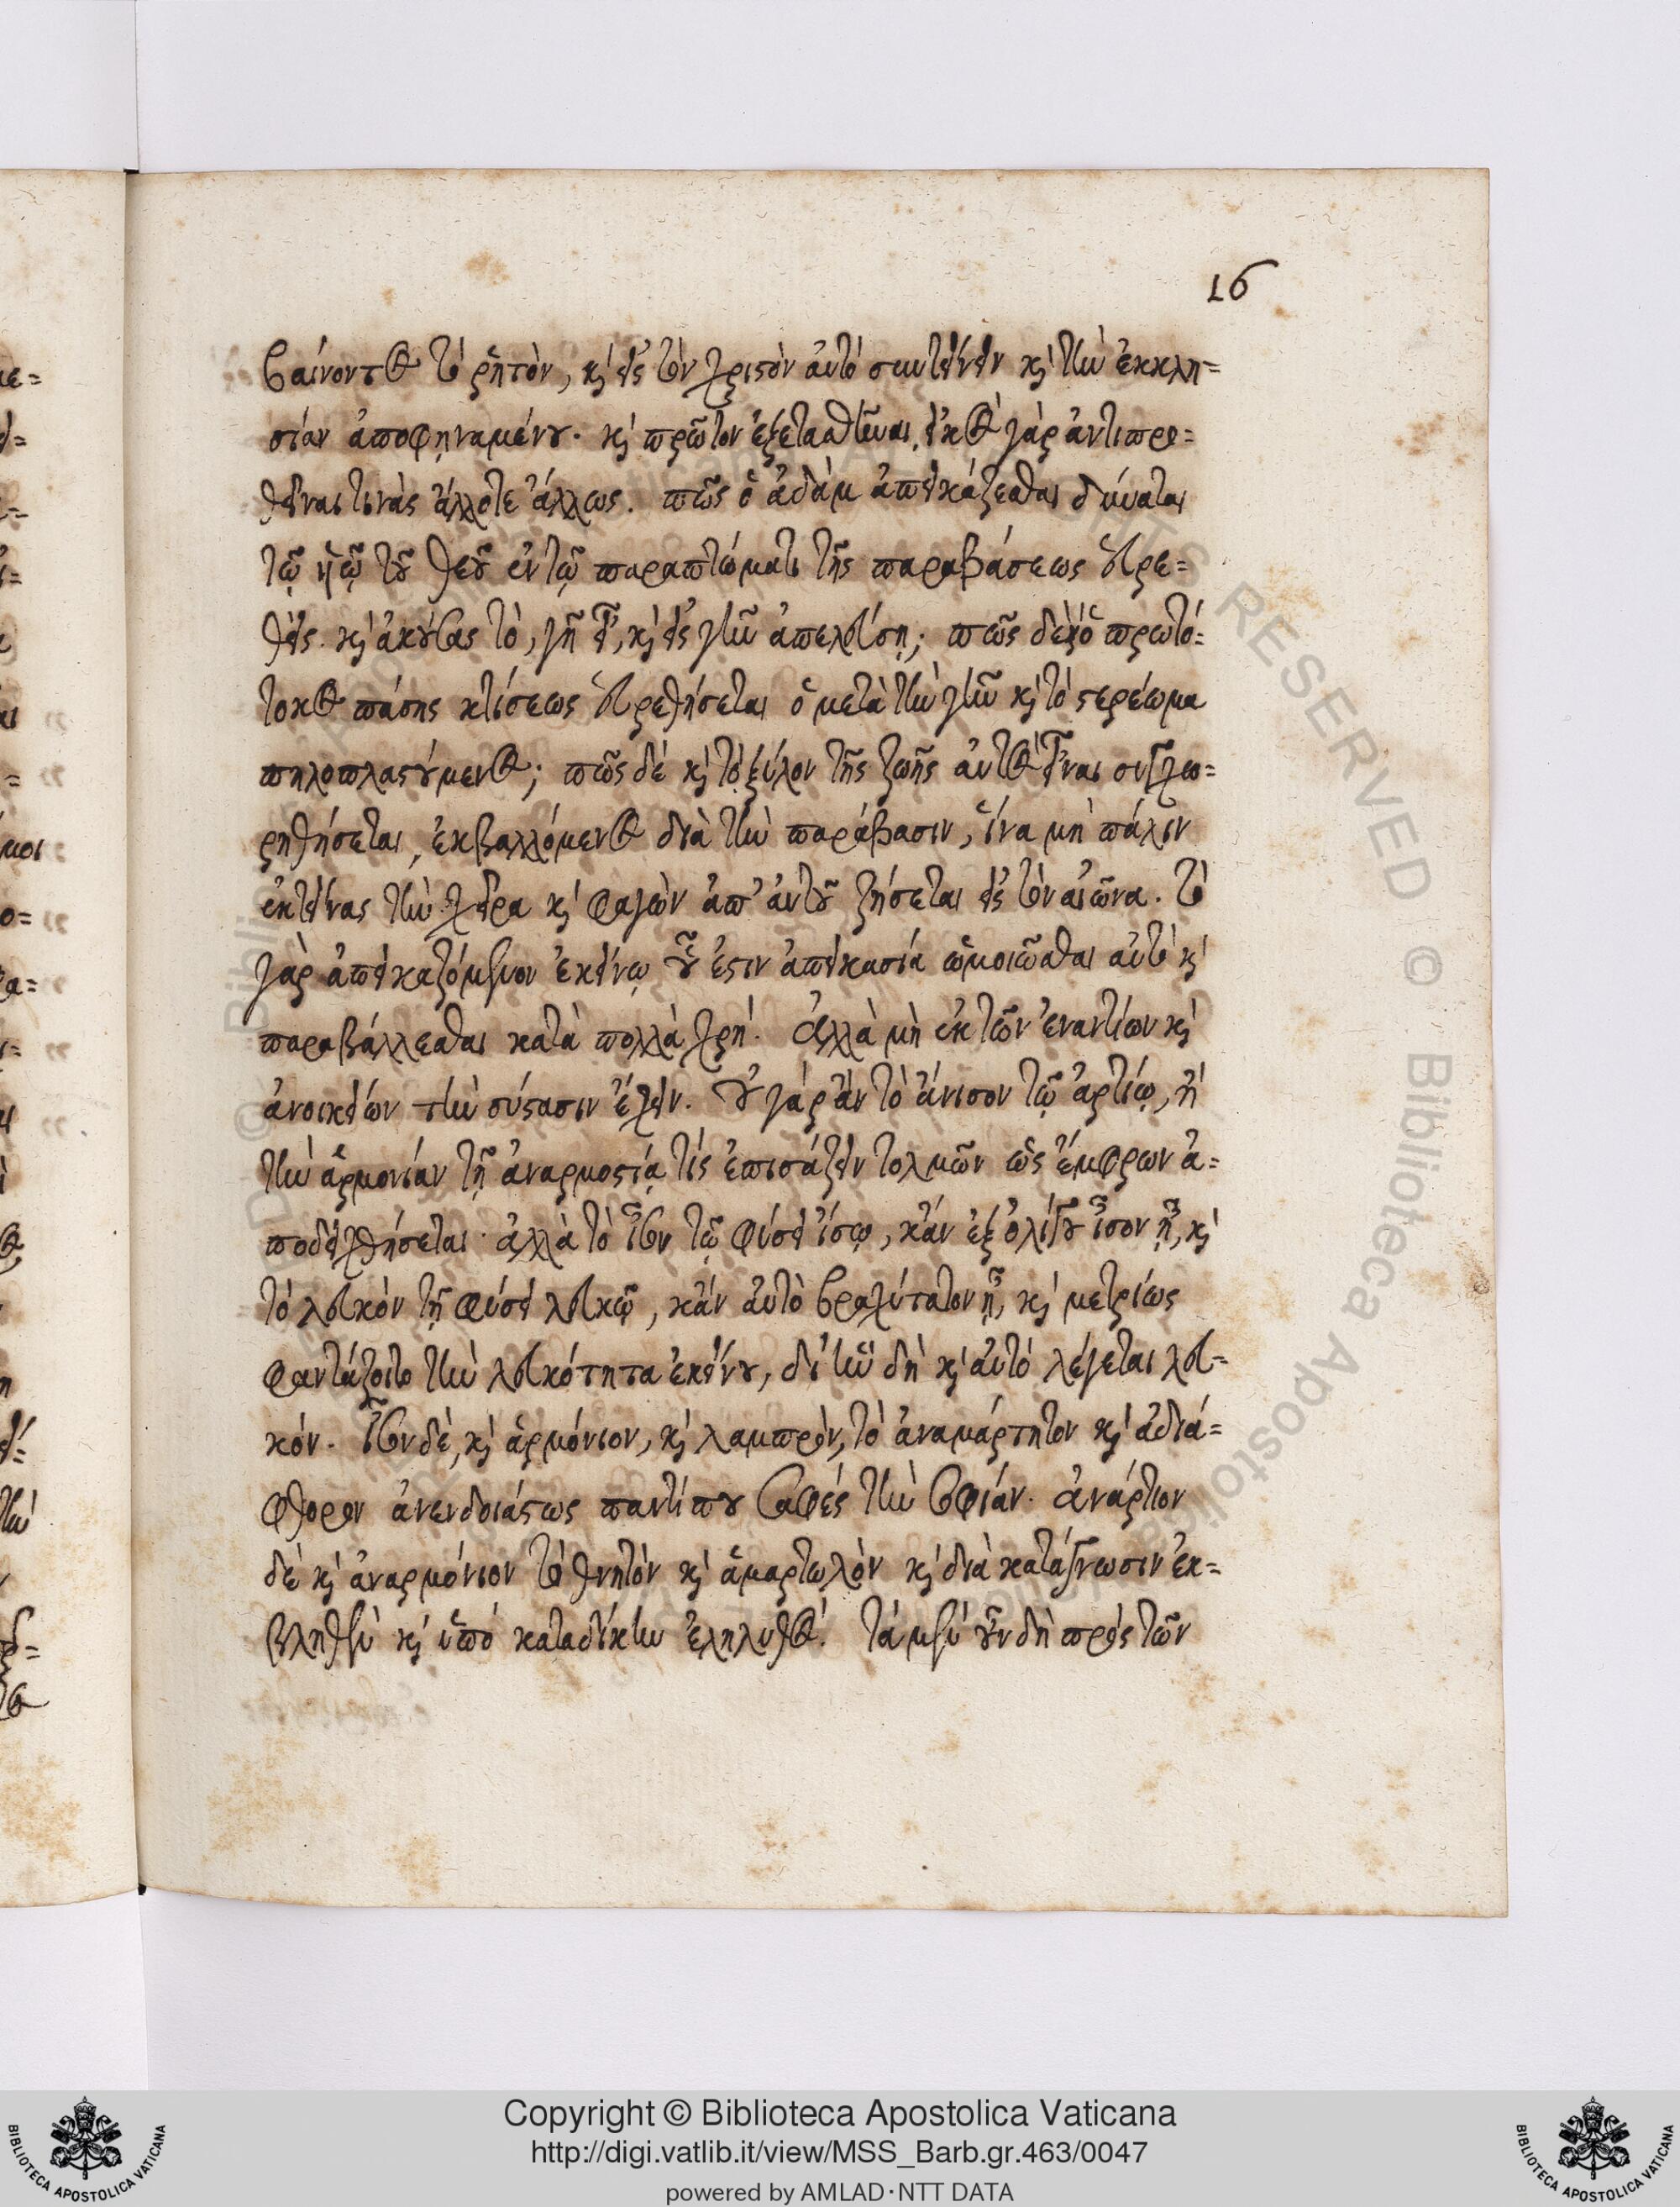 16
βαίνοντος τὸ ῥητὸν, καὶ εἰς τὸν χριστὸν αὐτὸ συντείνειν καὶ τὴν ἐκκλη=
σίαν ἀποφηναμένου. καὶ πρῶτον ἐξετασθῆναι, εἰκὸς γὰρ ἀντιπρο=
θεῖναι τινὰς ἄλλοτε ἄλλως. πῶς ὁ ἀδὰμ ἀπεικάζεσθαι δύναται
τῷ υἱῷ τοῦ θεοῦ ἐν τῷ παραπτώματι τῆς παραβάσεως εὑρε=
θείς. καὶ ἀκούσας τὸ, γῆ εἶ, καὶ εἰς γῆν ἀπελεύσῃ; πῶς δὲ καὶ ὁ πρωτό=
τοκος πάσης κτίσεως εὑρεθήσεται ὁ μετὰ τὴν γῆν καὶ τὸ στερέωμα
πηλοπλαστούμενος; πῶς δὲ καὶ τὸ ξύλον τῆς ζωῆς αὐτὸς εἶναι συγχω=
ρηθήσεται, ἐκβαλλόμενος διὰ τὴν παράβασιν, ἵνα μὴ πάλιν
ἐκτείνας τὴν χεῖρα καὶ φαγὼν ἀπ' αὐτοῦ ζήσεται εἰς τὸν αἰῶνα. τὸ
γὰρ ἀπεικαζόμενον ἐκείνῳ οὗ ἐστιν ἀπεικασία ὡμοιῶσθαι αὐτὸ καὶ
παραβάλλεσθαι κατὰ πολλὰ χρή. ἀλλὰ μὴ ἐκ τῶν ἐναντίων καὶ
ἀνοικείων τὴν σύστασιν ἔχειν. οὐ γὰρ ἂν τὸ ἄνισον τῷ ἀρτίῳ, ἢ
τὴν ἁρμονίαν τῇ ἀναρμοστίᾳ τίς ἐπισάζειν τολμῶν ὡς ἔμφρων ἀ=
ποδειχθήσεται. ἀλλὰ τὸ ἶσον τῷ φύσει ἴσῳ, κἂν ἐξ ὀλίγου ἶσον ᾖ, καὶ
τὸ λευκὸν τῇ φύσει λευκῷ, κἂν αὐτὸ βραχύτατον ᾖ, καὶ μετρίως
φαντάζοιτο τὴν λευκότητα ἐκείνου, δι' ἣν δὴ καὶ αὐτὸ λέγεται λευ=
κόν. ἶσον δὲ, καὶ ἁρμόνιον, καὶ λαμπρὸν, τὸ ἀναμάρτητον καὶ ἀδιά=
φθορον ἀνενδοιάστως παντί που σαφές τὴν σοφίαν. ἀνάρτιον
δὲ καὶ ἀναρμόνιον τὸ θνητὸν καὶ ἁμαρτωλὸν καὶ διὰ κατάγνωσιν ἐκ=
βληθὲν καὶ ὑπὸ καταδίκην ἐληλυθός. τὰ μὲν οὖν δὴ πρὸς τῶν
Copyright © Biblioteca Apostolica Vaticana
http://digi.vatlib.it/view/MSS_Barb.gr.463/0047
powered by AMLAD·NTT DATA